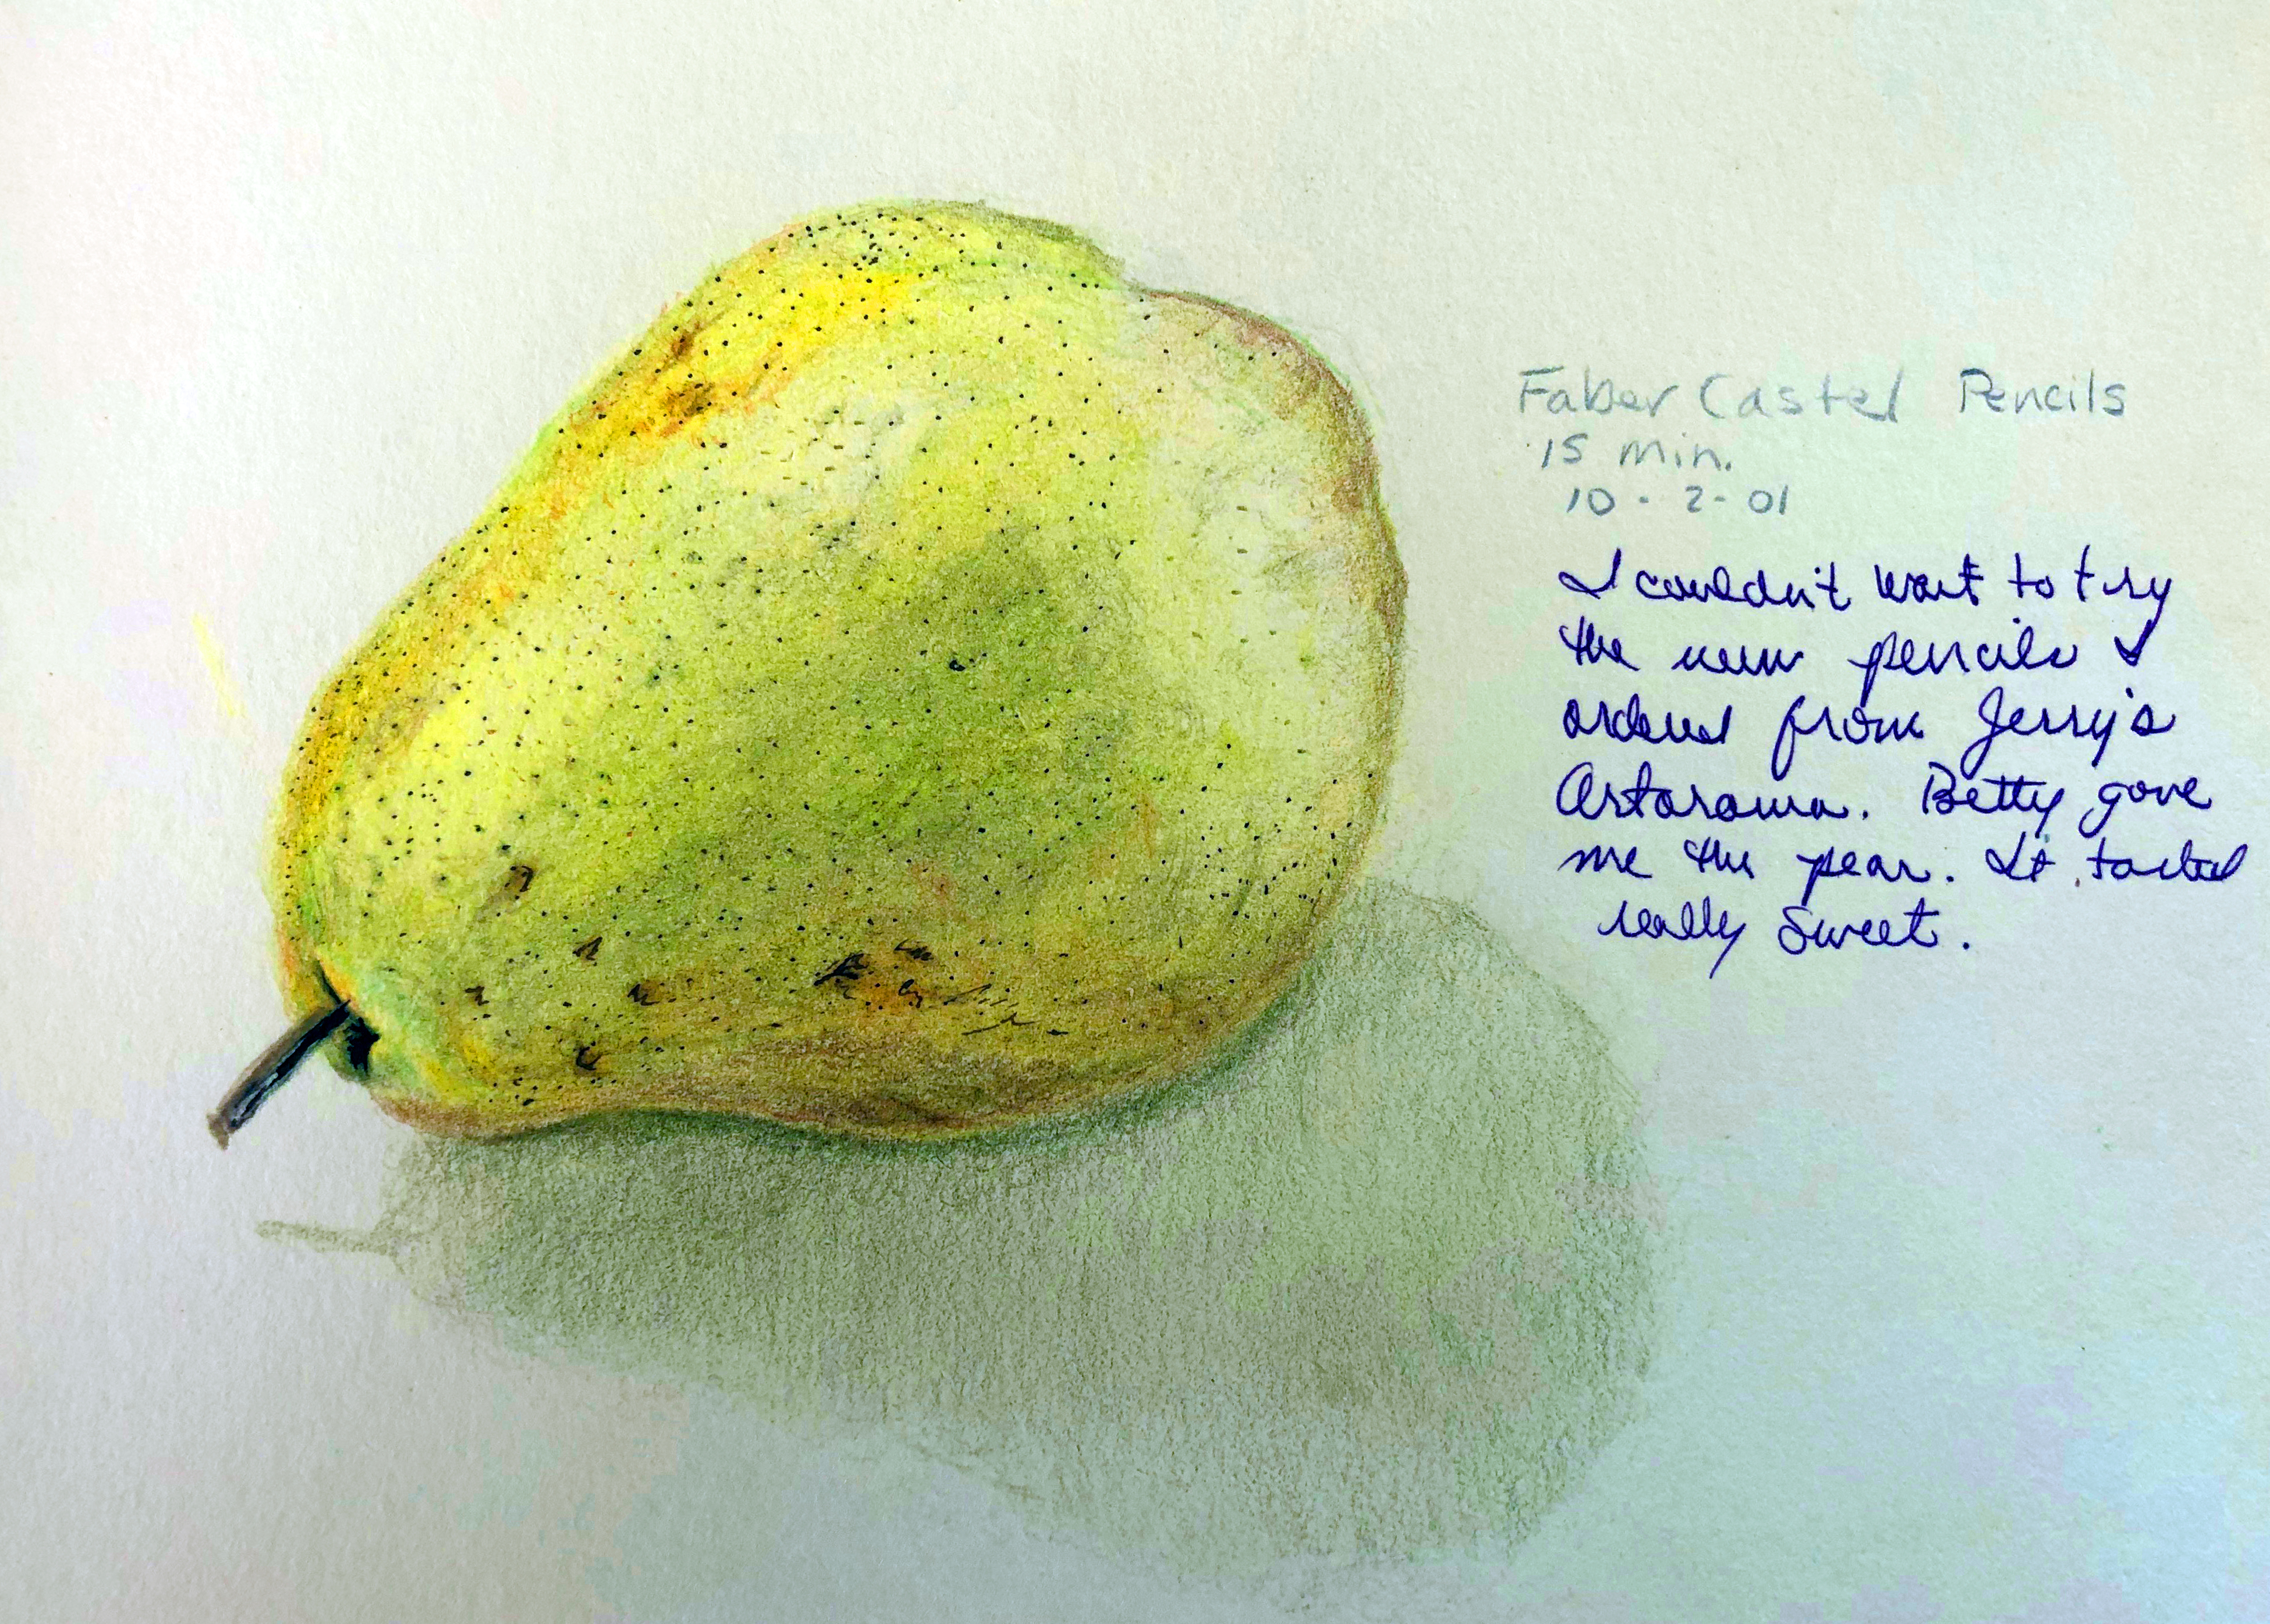 Faber Castel Pencils
15 min.
10-2-01
I couldn't wait to try
the new pencils I
ordered from Jerry's
Artarama. Betty gave
me the pear. It tasted
really sweet.